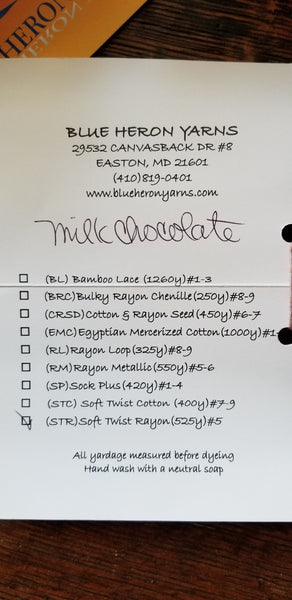 HERON
HERON
BLUE HERON YARNS
29532 CANVASBACK DR #8
EASTON, MD 21601
(410)819-0401
www.blueheronyarns.com
Milk Chocolate
(BL) Bamboo Lace (1260y)#1-3
(BRC)Bulky Rayon Chenille(250y)#8-9
(CRSD)Cotton & Rayon Seed(450y)#6-7
(EMC)Egyptian Mercerized Cotton(1000y)#1-
(RL)Rayon Loop(325y)#8-9
(RM)Rayon Metallic(550y)#5-6
(SP)Sock Plus(420y)#1-4
(STC) Soft Twist Cotton (400y)#7-9
(STR)Soft Twist Rayon(525y)#5
All yardage measured before dyeing
Hand wash with a neutral soap